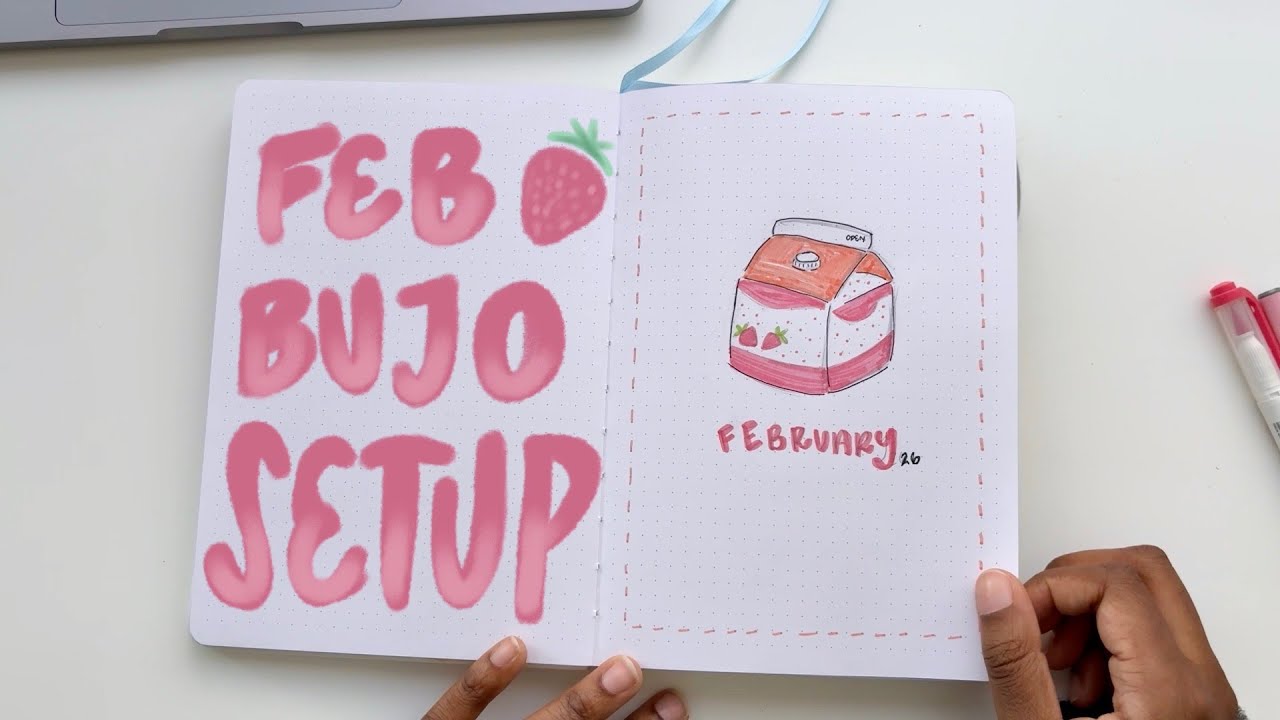 FEB
BUJO
SETUP
OPEN
FEBRUARY 26